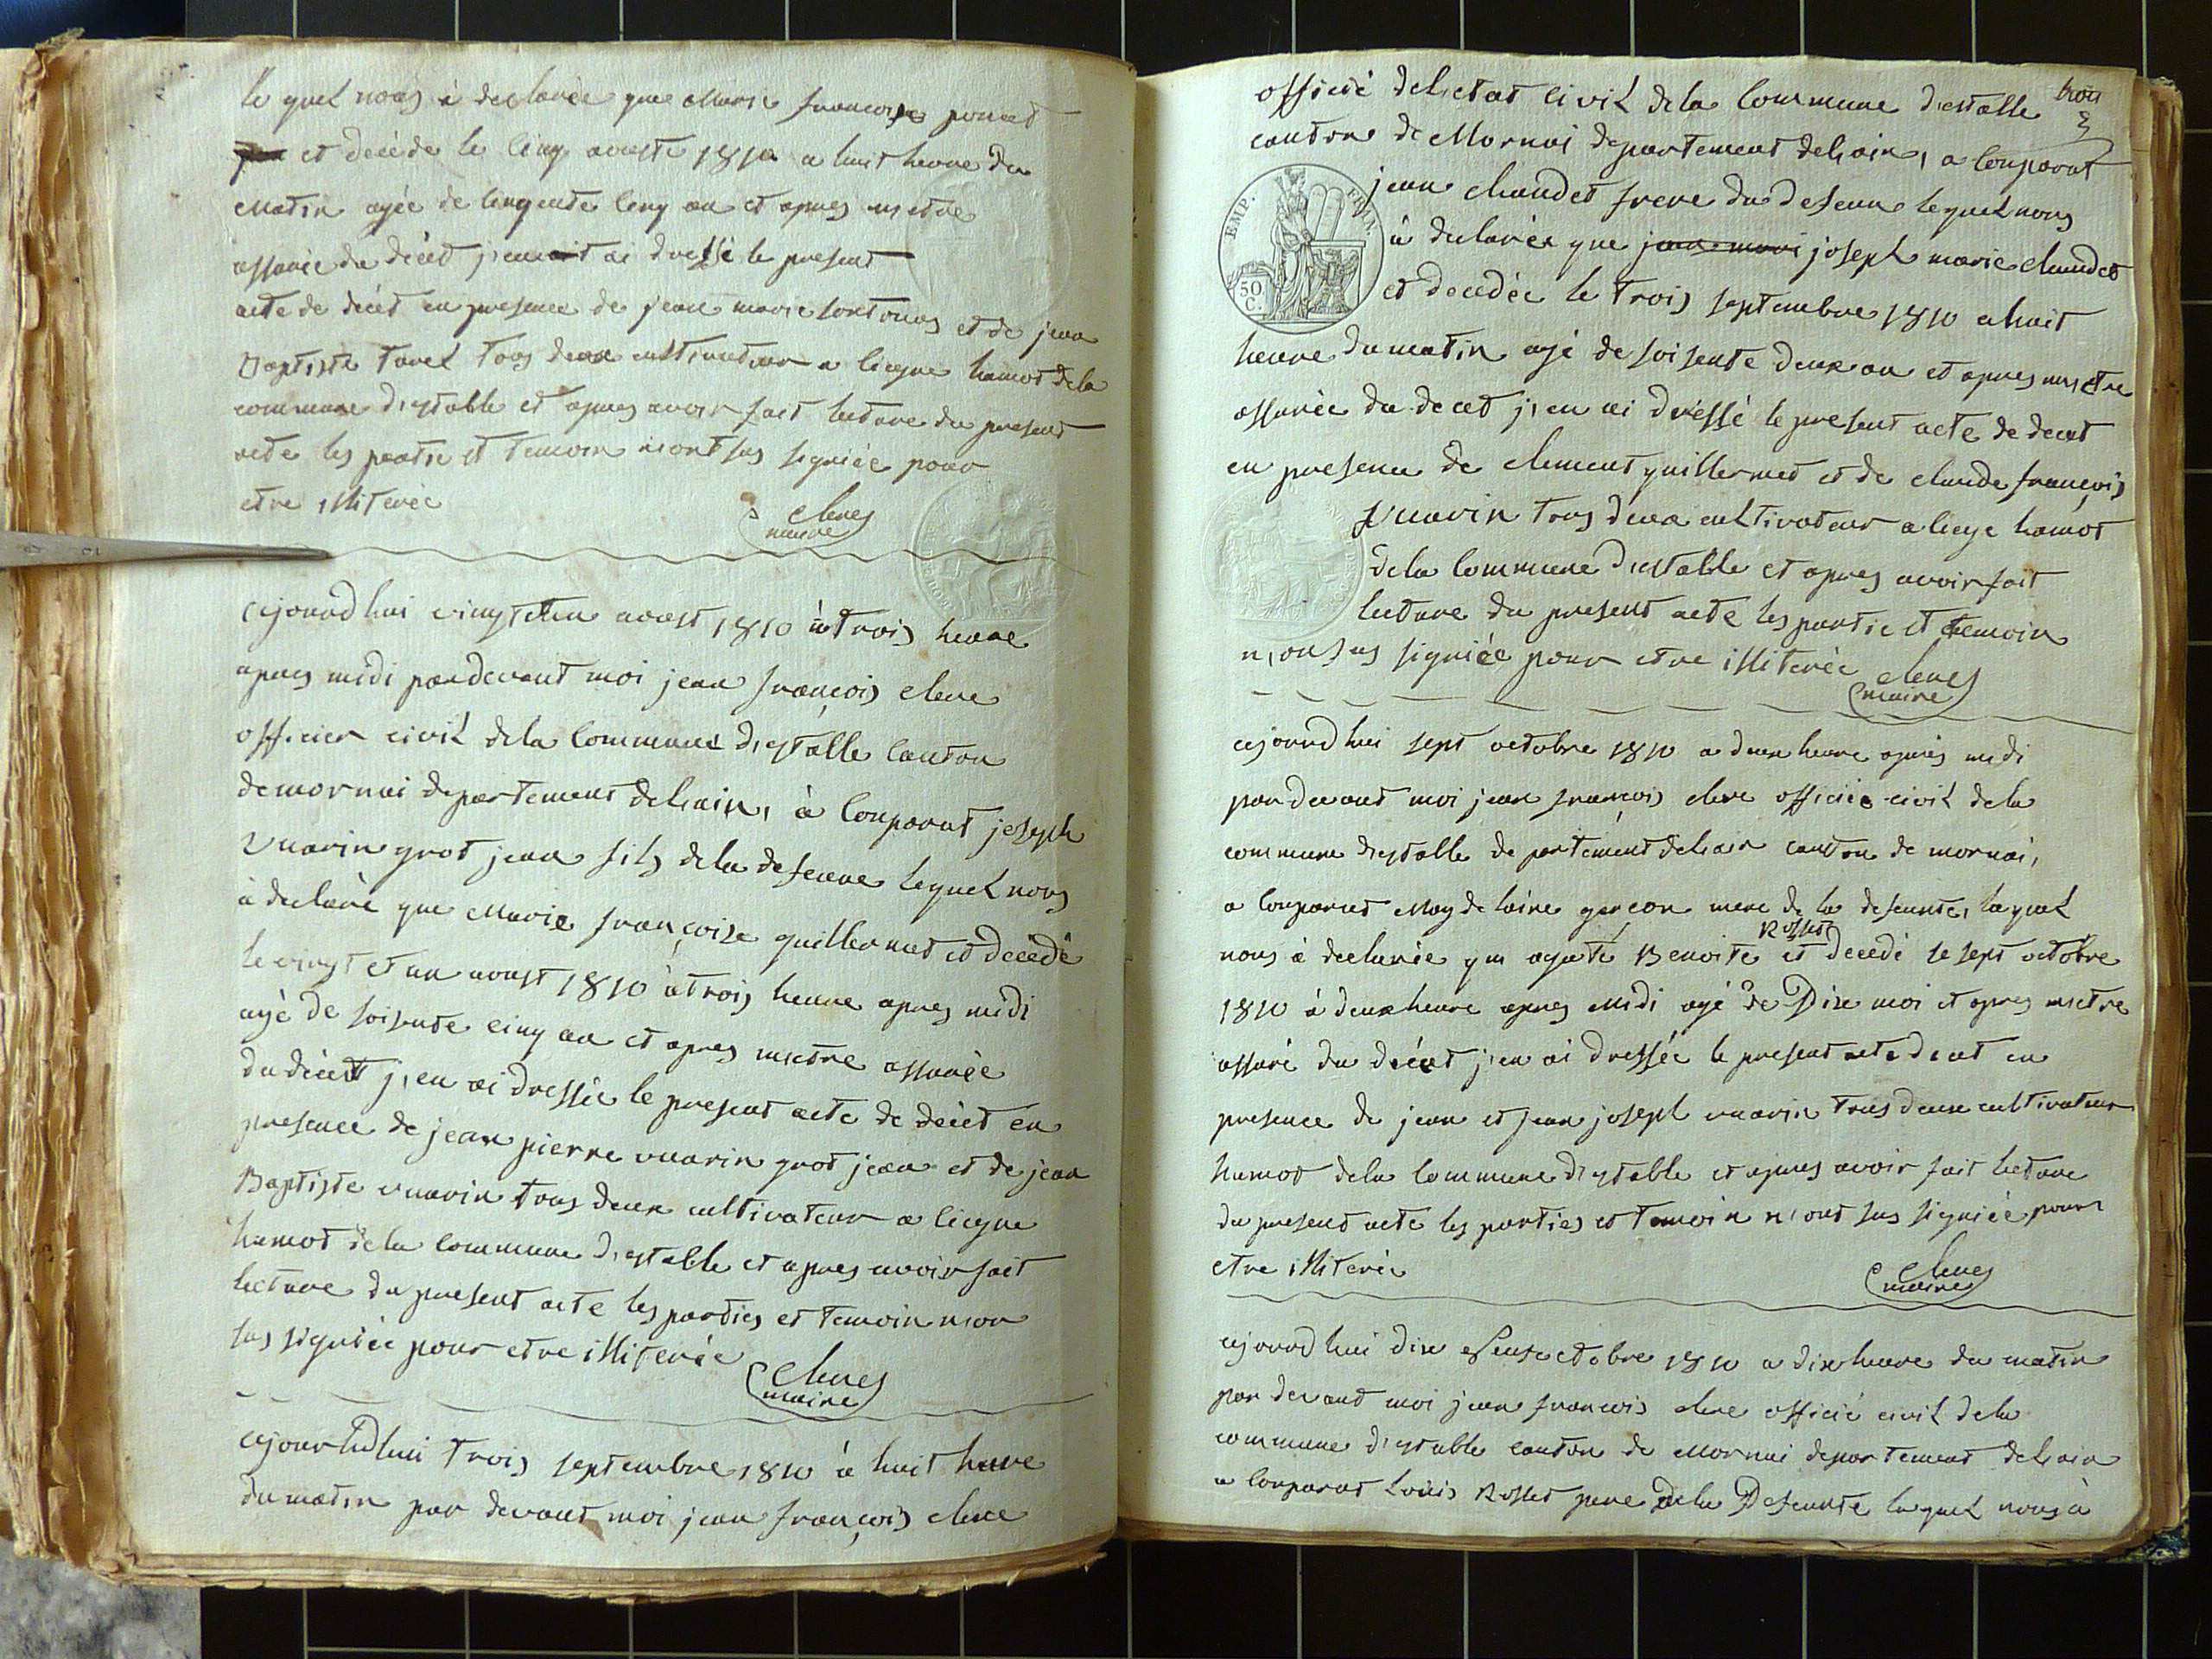 le quel nous à declarée que Marie francoise poncet
et decéde le cinq aouste 1810 a huit heure du
Matin agée de cinquente cinq an et apres metre
assurée du décét j'en ai dressé le present
acte de décét en presence de jean marie fontonas et de jean
Baptiste tavel tous deux cultivateur a licyne hamot dela
commune d'estable et apres avoir fait lecture du present
acte les partie et temoin n'ont sus signiée pour
etre illiterée
clerc
maire
cejourd hui vingt et un aoust 1810 à trois heure
apres midi pardevant moi jean françois clerc
officier civil dela Commune d'estable canton
de mornai departement delain, à comparut joseph
vuarin grot jean fils dela defeune lequel nous
à declaré que Marie françoise guillermet et décédé
le vingt et un aoust 1810 à trois heure apres midi
agé de soisente cinq an et apres metre assurée
du décét j'en ai dressée le present acte de décét en
presence de jean pierre vuarin grot jean et de jean
Baptiste vuarin tous deux cultivateur a licyne
hamot dela commune d'estable et apres avoir fait
lecture du present acte les parties et temoin n'on
sus signiée pour etre illiterée
clerc
maire
cejourdhui trois septembre 1810 à huit heure
du matin par devant moi jean françois clerc
officié deletat civil dela Commune d'estable
trois
3
canton de Mornai departement delain, a comparut
jean chaudet frere du defeune lequel nous
à declarée que jean mari joseph marie chaudet
et decedée le trois septembre 1810 a huit
EMP. FRAN.
50
C.
heure du matin agé de soisente deux an et apres metre
assurée du decet j'en ai dréssé le present acte de decet
en presence de clement guillermet et de claude françois
vuarin tous deux cultivateur a licye hamot
dela Commune d'estable et apres avoir fait
lecture du present acte les partie et temoin
n'on sus signiée pour etre illiterée
clerc
maire
cejourdhui sept octobre 1810 a deux heure après midi
par devant moi jean francois clerc officiée civil dela
commune d'estable departement delain canton de mornai,
a comparut Magdelaine garcon mere de la defeunte, laquel
Rosset
nous à declarée que agate Benoite et decedé le sept octobre
1810 à deux heure apres midi agé de Dix moi et apres metre
assuré du décét j'en ai dressée le present acte decet en
presence de jean et jean joseph vuarin tous deux cultivateur
hamot dela Commune d'estable et apres avoir fait lecture
du present acte les parties et temoin n'ont sus signiée pour
etre illiterée
clerc
maire
cejourd hui dix octobre 1810 a dix heure du matin
par devant moi jean francois clerc officié civil dela
commune d'estable canton de Mornai departement delain
a comparut Louis Rosset pere dela Defeunte laquel nous à